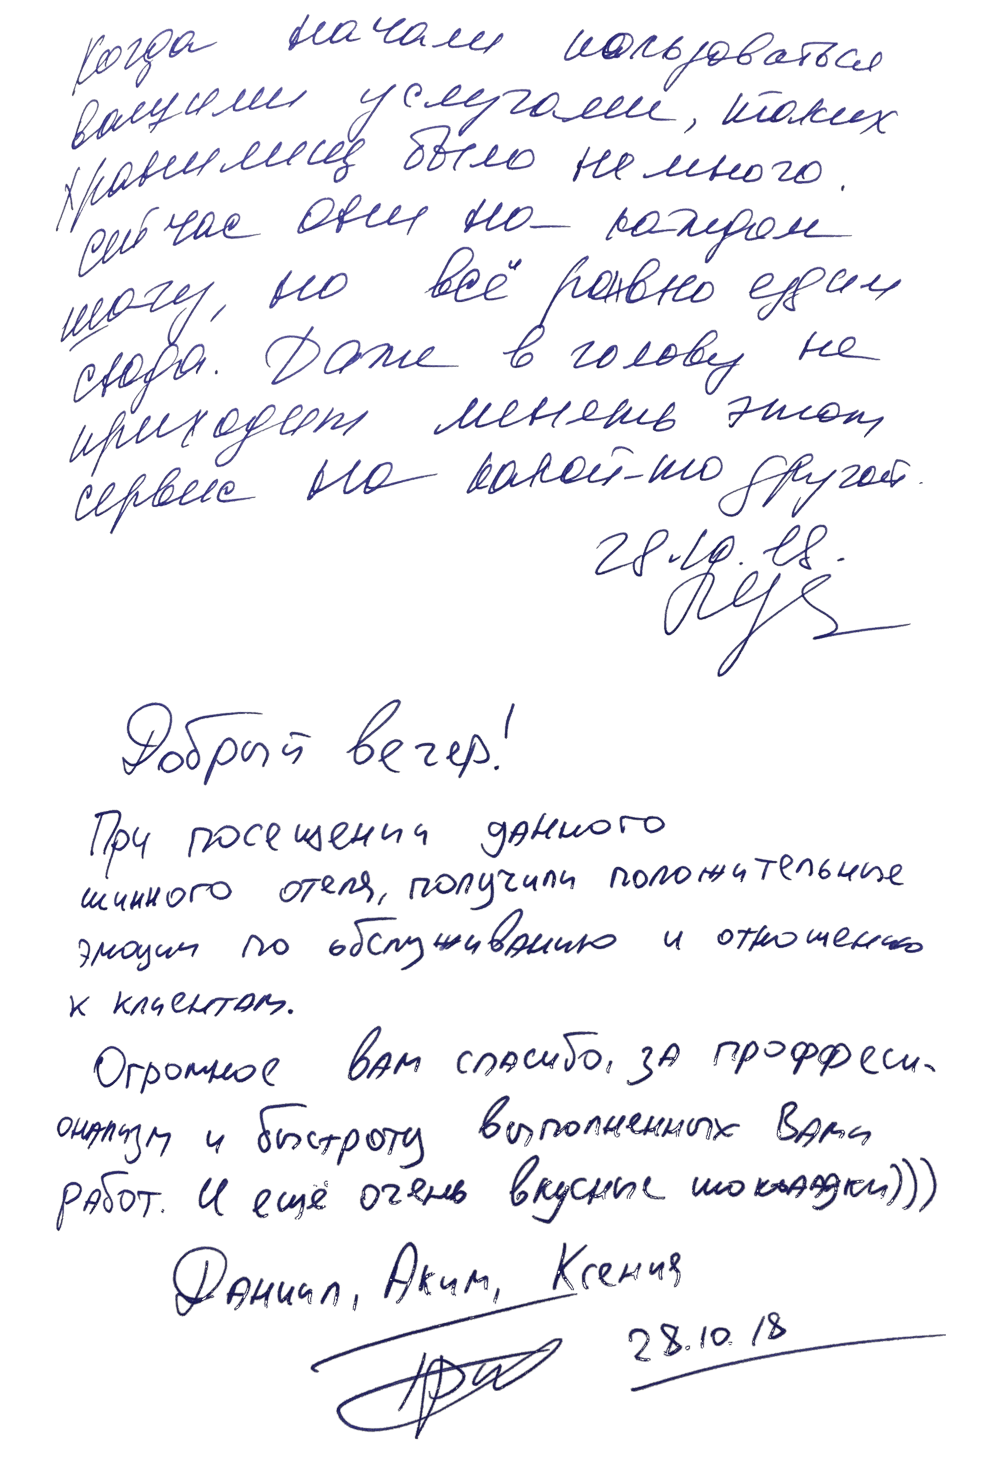 Когда начали пользоваться
вашими услугами, таких
хранилищ было немного.
Сейчас они на каждом
шагу, но всё равно едем
сюда. Даже в голову не
приходит менять этот
сервис на какой-то другой.
28.10.18.
Добрый вечер!
При посещении данного
шинного отеля, получили положительные
эмоции по обслуживанию и отношению
к клиентам.
Огромное вам спасибо, за проффеси-
онализм и быстроту выполненных Вами
работ. И ещё очень вкусные шоколадки)))
Даниил, Аким, Ксения
28.10.18